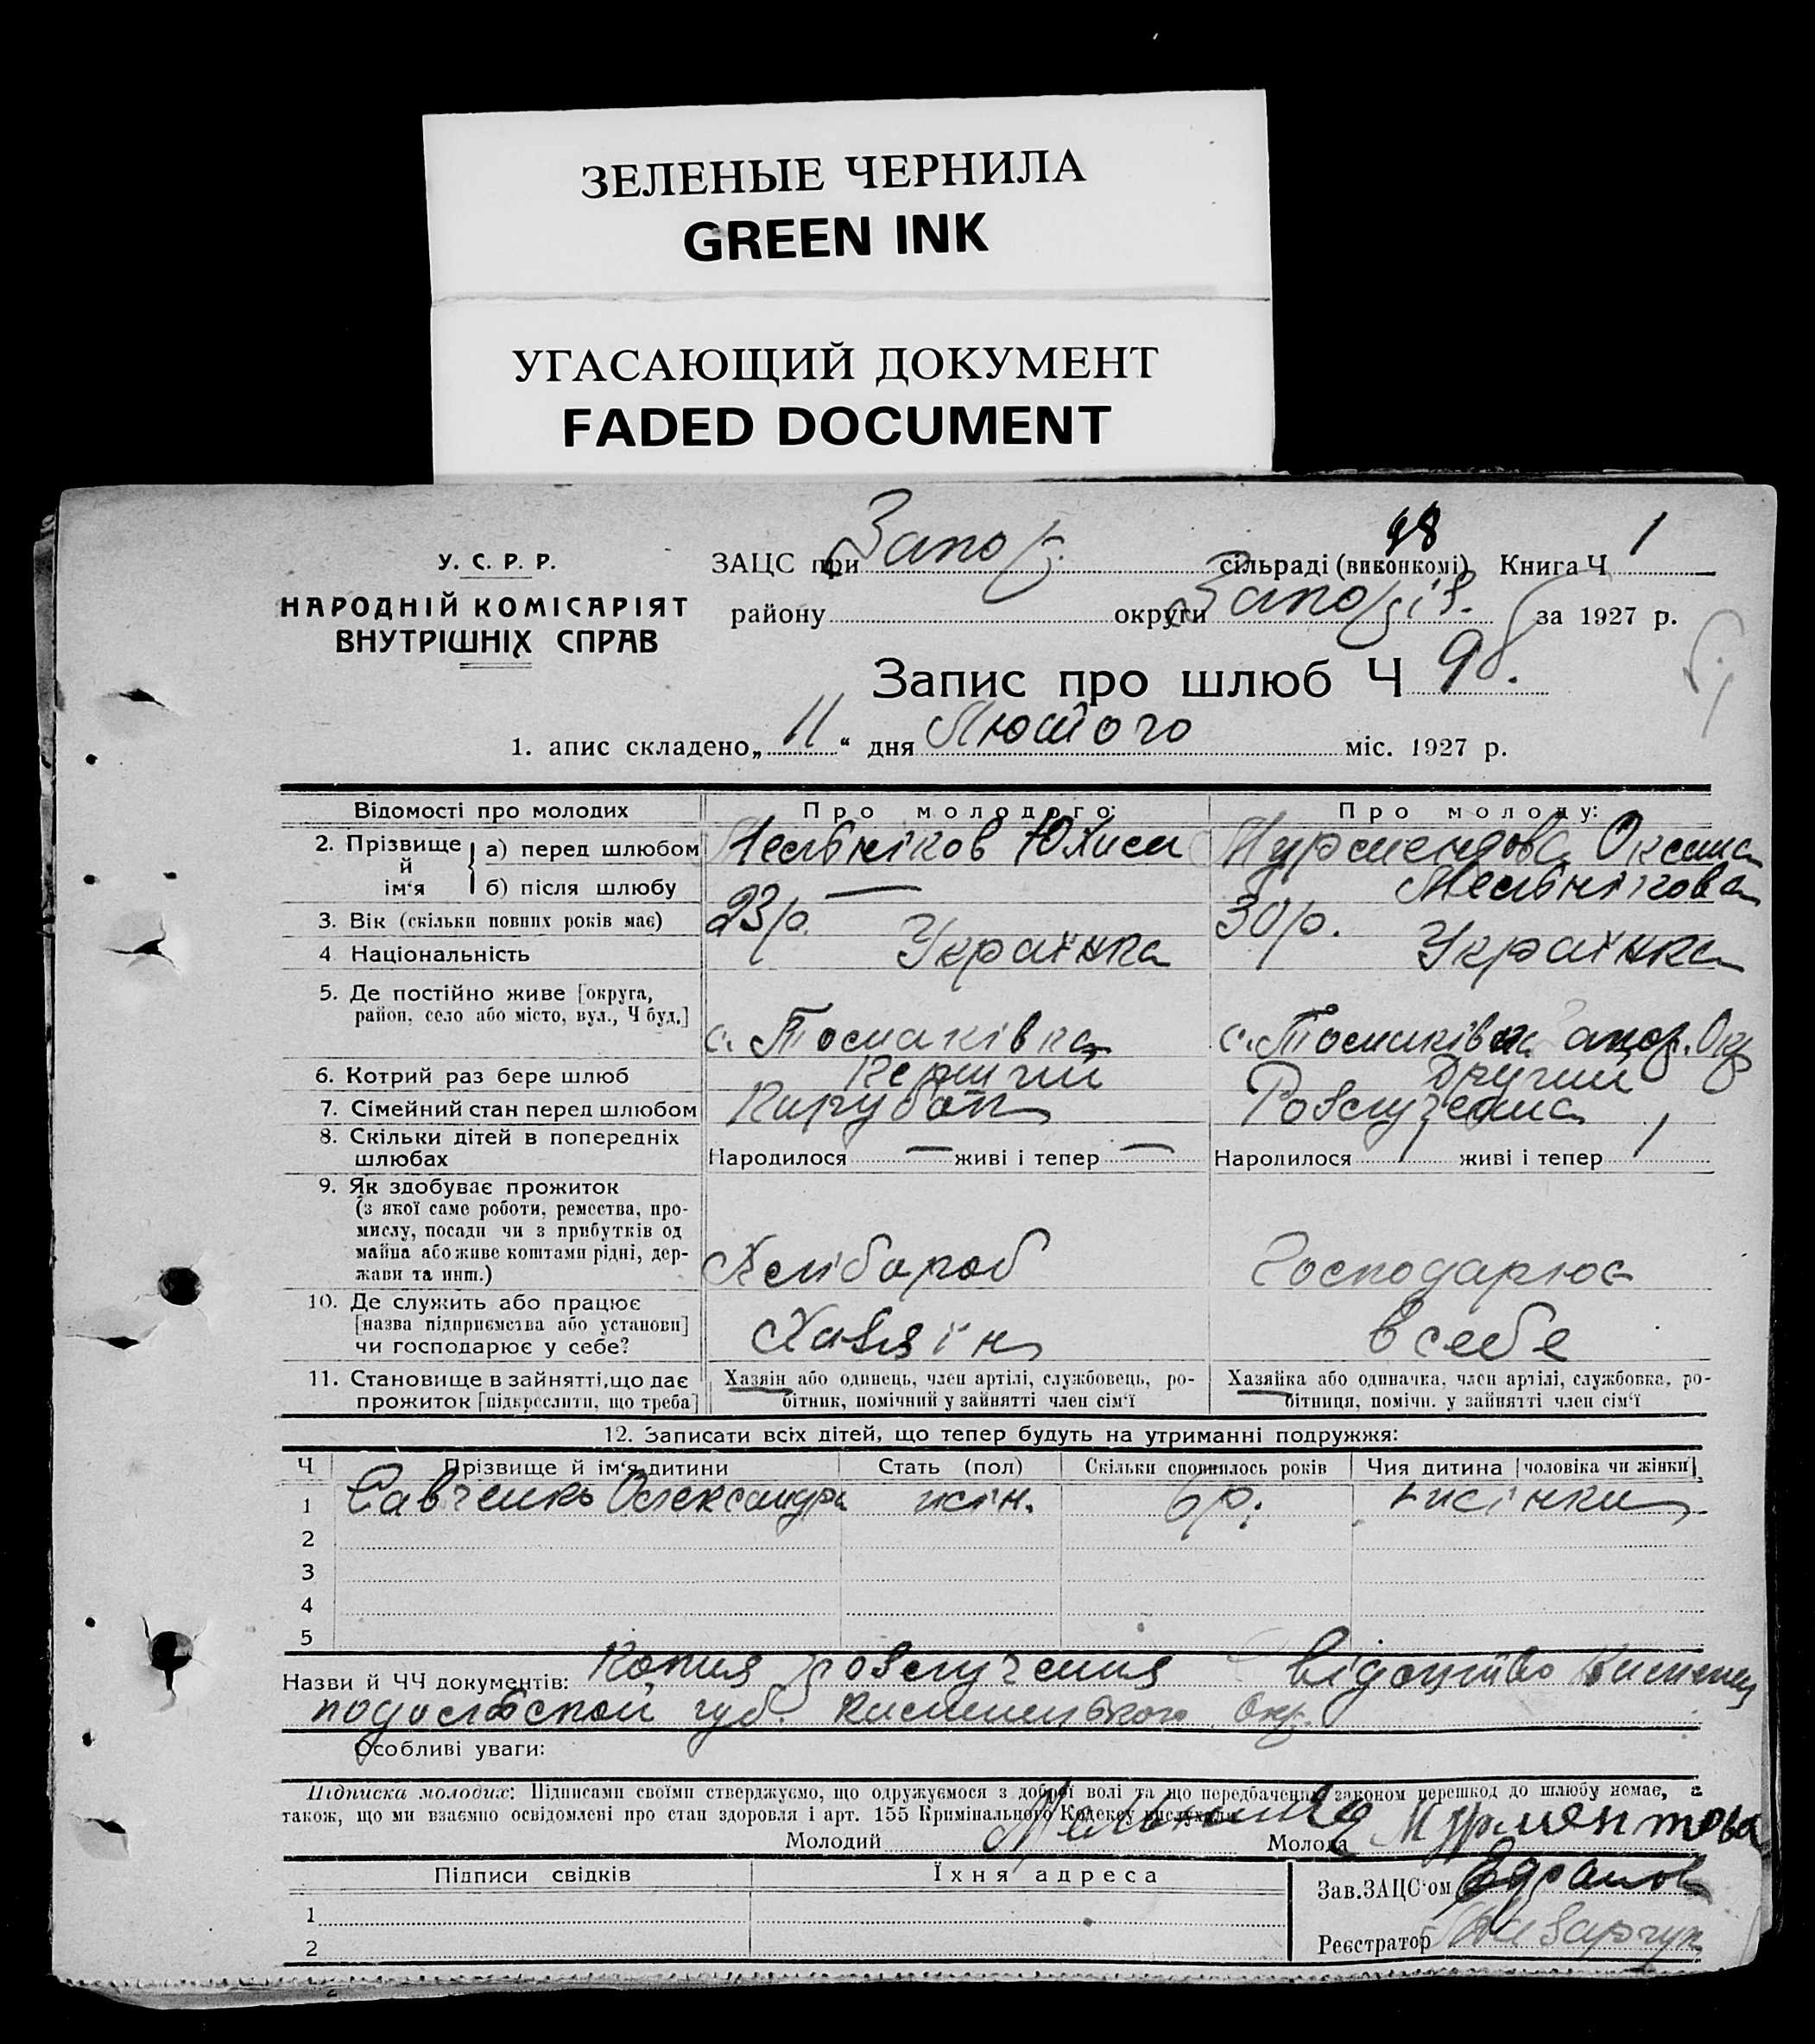 ЗЕЛЕНЫЕ ЧЕРНИЛА
GREEN INK
УГАСАЮЩИЙ ДОКУМЕНТ
FADED DOCUMENT
98
У. С. Р. Р.
НАРОДНІЙ КОМІСАРІЯТ
ВНУТРІШНІХ СПРАВ
ЗАЦС при Запор. сільраді (виконкомі) Книга Ч 1
району округи Запоріз. за 1927 р.
Запис про шлюб Ч 98.
1. апис складено „11“ дня Лютого міс. 1927 р.
Відомості про молодих Про молодого: Про молоду:
2. Прізвище й ім‘я
а) перед шлюбом Мельніков Юхим Оксана
б) після шлюбу — Мельнікова
3. Вік (скільки повних років має) 23 р. 30 р.
4. Національність Українка Українка
5. Де постійно живе [округа, район, село або місто, вул., Ч буд.] с. Томаківка с. Томаківка Окр
6. Котрий раз бере шлюб Перший Другий
7. Сімейний стан перед шлюбом Парубок
8. Скільки дітей в попередніх шлюбах Народилося — живі і тепер — Народилося 1 живі і тепер 1
9. Як здобуває прожиток
(з якої саме роботи, ремества, про-
мислу, посади чи з прибутків од
майна або живе коштами рідні, дер-
жави та инш.)
Хлібороб Господарює
10. Де служить або працює
[назва підприємства або установи]
чи господарює у себе?
Хазяїн в себе
11. Становище в зайнятті, що дає
прожиток [підкреслити, що треба]
Хазяїн або одинець, член артілі, службовець, ро-
бітник, помічний у зайнятті член сім‘ї
Хазяйка або одиначка, член артілі, службовка, ро-
бітниця, помічн. у зайнятті член сім‘ї
12. Записати всіх дітей, що тепер будуть на утриманні подружжя:
Ч Прізвище й ім‘я дитини Стать (пол) Скільки сповнилось років Чия дитина [чоловіка чи жінки]
1 Савченко Олександра жін. 6 р. жінки
2
3
4
5
Назви й ЧЧ документів: Копия
губ. Окр.
Особливі уваги:
Підписка молодих: Підписами своїми стверджуємо, що одружуємося з доброї волі та що передбачених законом перешкод до шлюбу немає, а
також, що ми взаємно освідомлені про стан здоровля і арт. 155 Кримінального Кодексу вислухали
Молодий Молода Мурментова
Підписи свідків Їхня адреса
Зав. ЗАЦС‘ом
1
Реєстратор
2